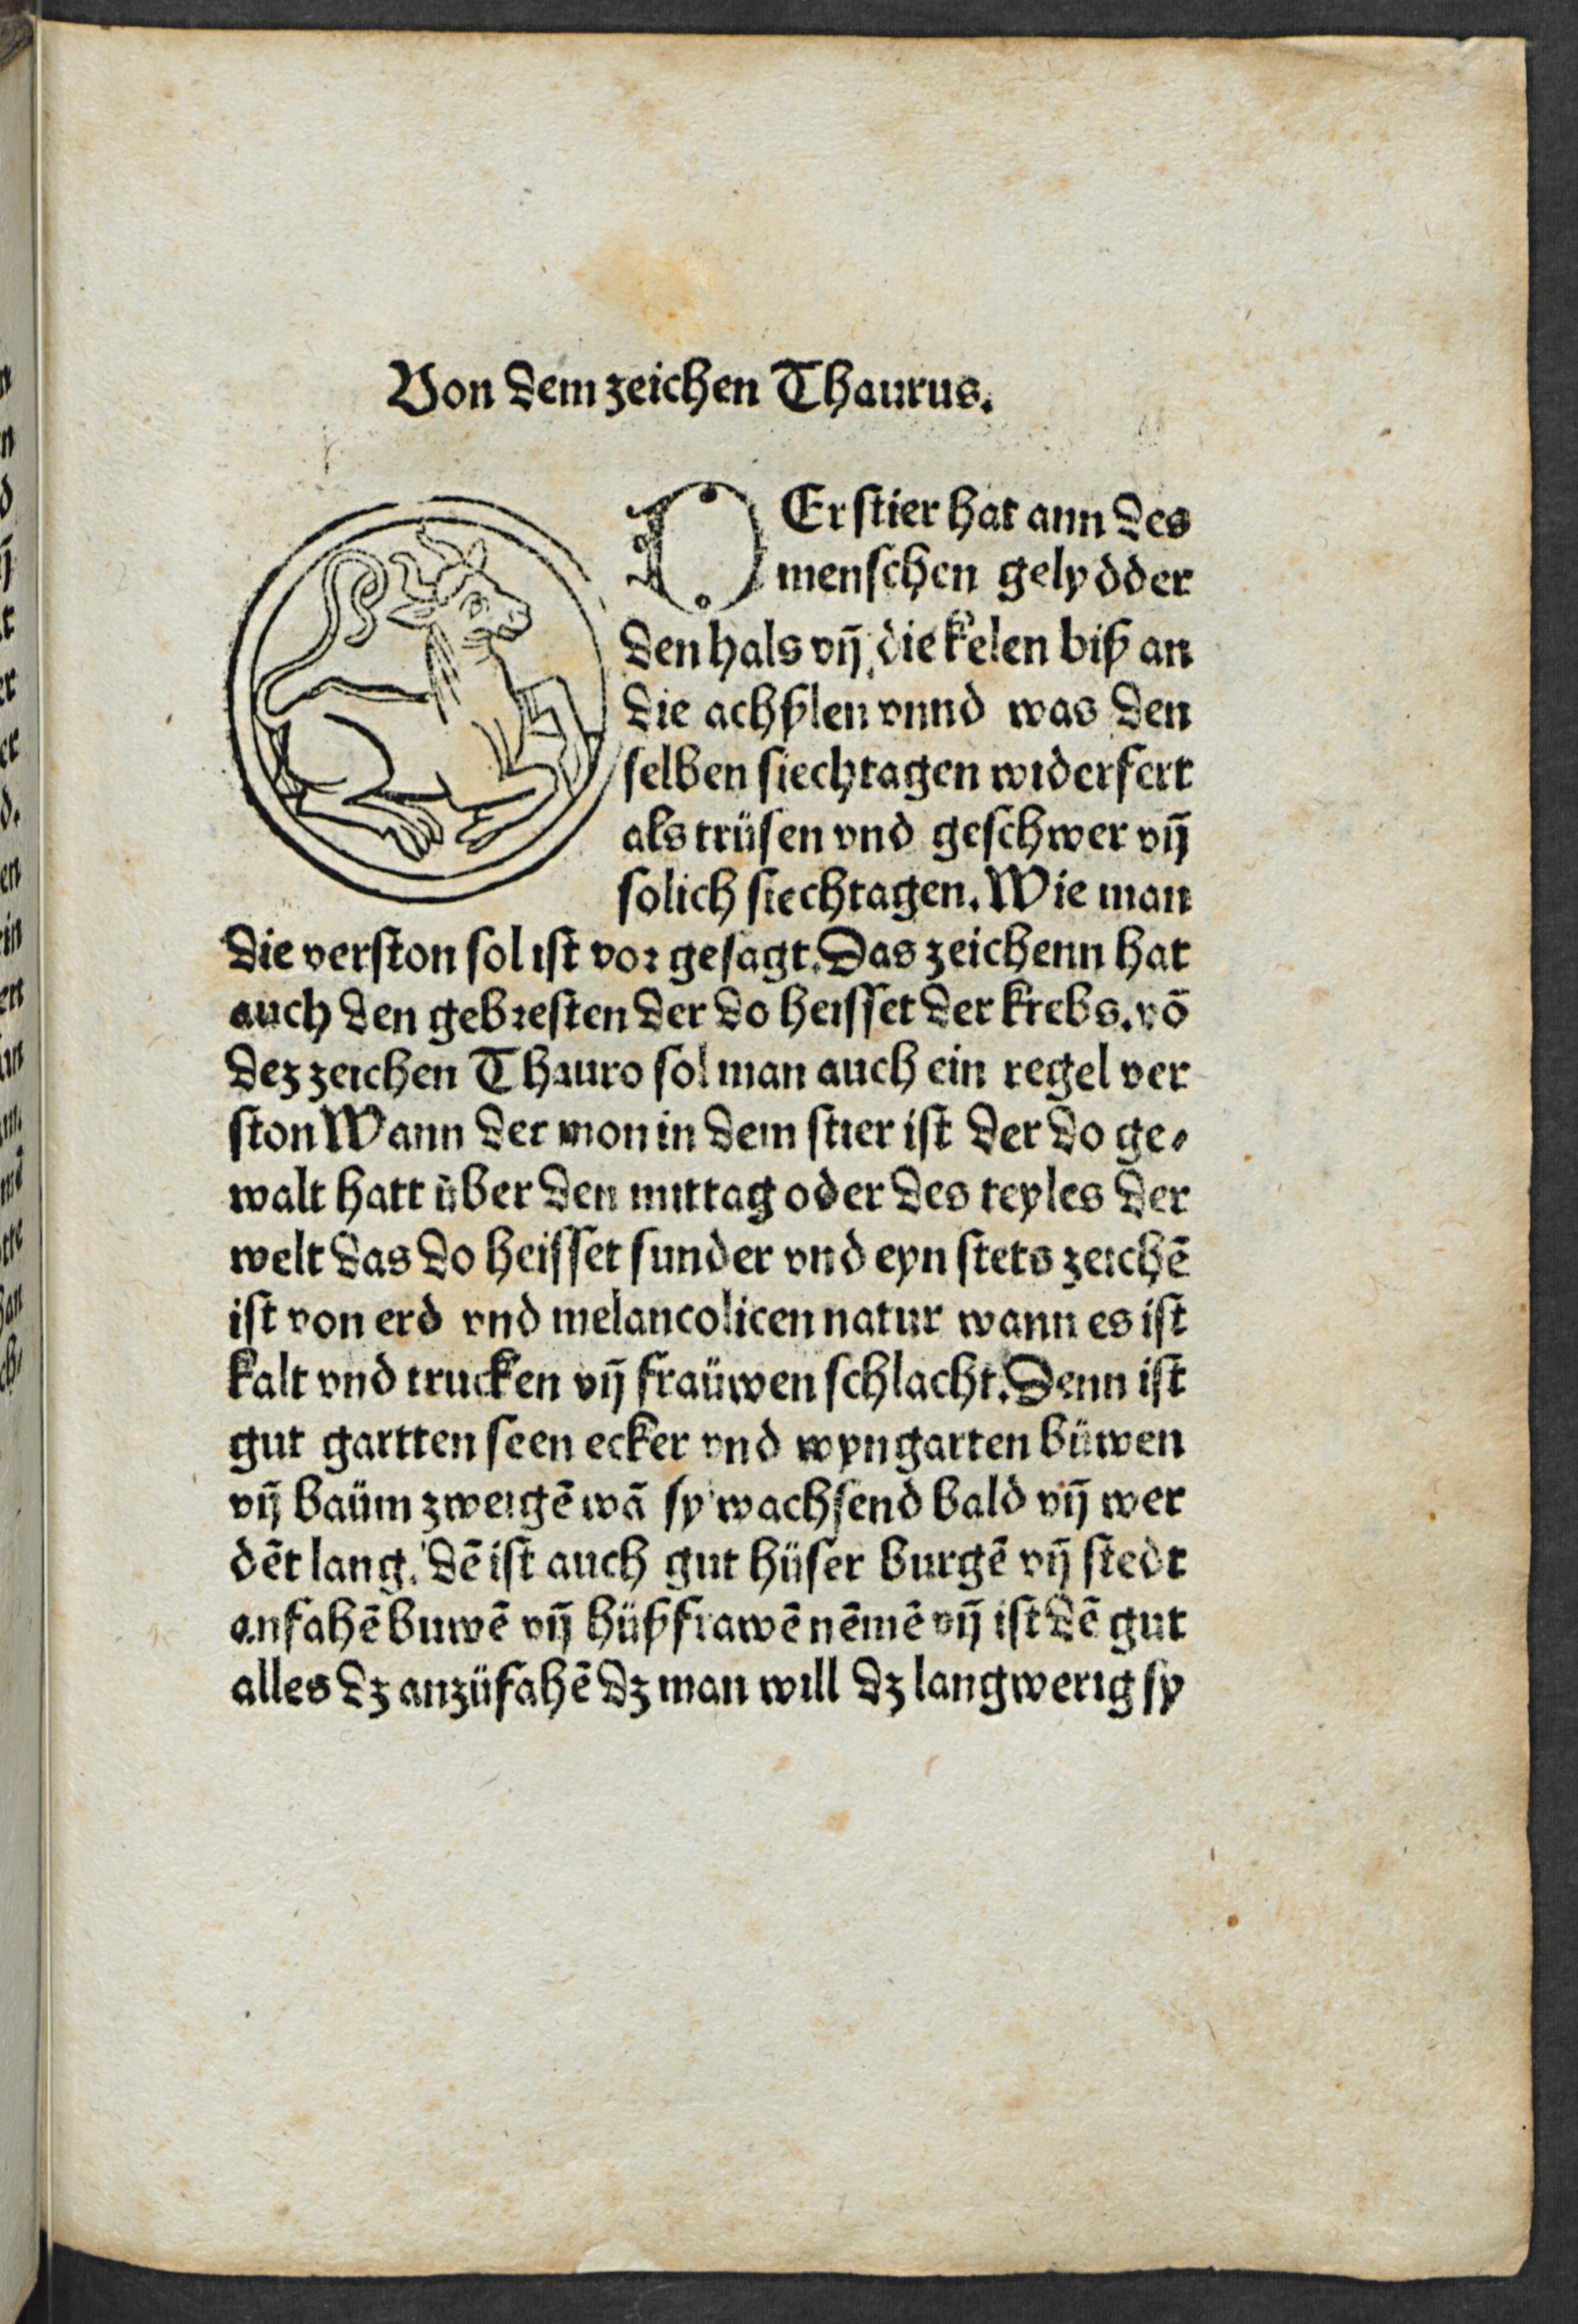 Von dem zeichen Thaurus.
DEr stier hat ann des
menschen gelydder
den hals vn̄ die kelen biß an
die achßlen vnnd was den
selben siechtagen widerfert
als trüsen vnd geschwer vn̄
solich siechtagen. Wie man
die verston sol ist vor gesagt. Das zeichenn hat
auch den gebresten der do heisset der krebs. vō
dez zeichen Thauro sol man auch ein regel ver
ston Wann der mon in dem stier ist der do ge⸗
walt hatt über den mittag oder des teyles der
welt das do heisset sunder vnd eyn stets zeichē
ist von erd vnd melancolicen natur wann es ist
kalt vnd trucken vn̄ fraüwen schlacht. Denn ist
gut gartten seen ecker vnd wyngarten büwen
vn̄ baüm zweigē wā sy wachsend bald vn̄ wer
dēt lang. dē ist auch gut hüser burgē vn̄ stedt
anfahē buwē vn̄ hüßfrawē nēmē vn̄ ist dē gut
alles dz anzüfahē dz man will dz langwerig sy